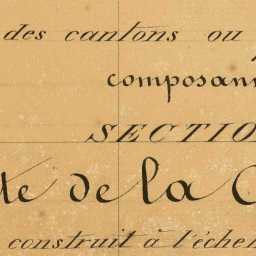 des cantons ou
composan
SECTIO
te de la C
construit à l'échel